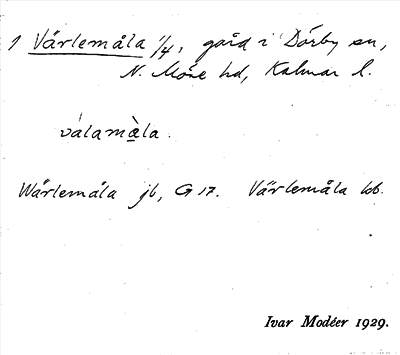 1 Vårlemåla 1/4, gård i Dörby sn,
N. Möre hd, Kalmar l.
válamàla.
Wårlemåla jb, G 17. Värlemåla kb.
Ivar Modéer 1929.